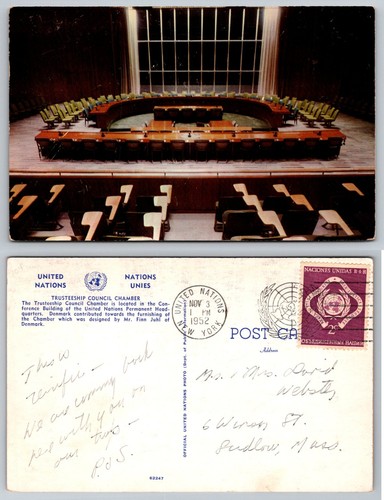 UNITED NATIONS
NATIONS UNIES
TRUSTEESHIP COUNCIL CHAMBER
The Trusteeship Council Chamber is located in the Con-
ference Building of the United Nations Permanent Head-
quarters. Denmark contributed towards the furnishing of
the Chamber which was designed by Mr. Finn Juhl of
Denmark.
This is
terrific —
We are coming back
here with you on
our trip —
P.D.S.
62347
OFFICIAL UNITED NATIONS PHOTO (Dept. of Public
UNITED NATIONS
NOV 3
1 PM
1952
NEW YORK
POST CA
Address
NACIONES UNIDAS
2c
Mr. & Mrs. David
Webster
6 Winsor St.
Ludlow, Mass.